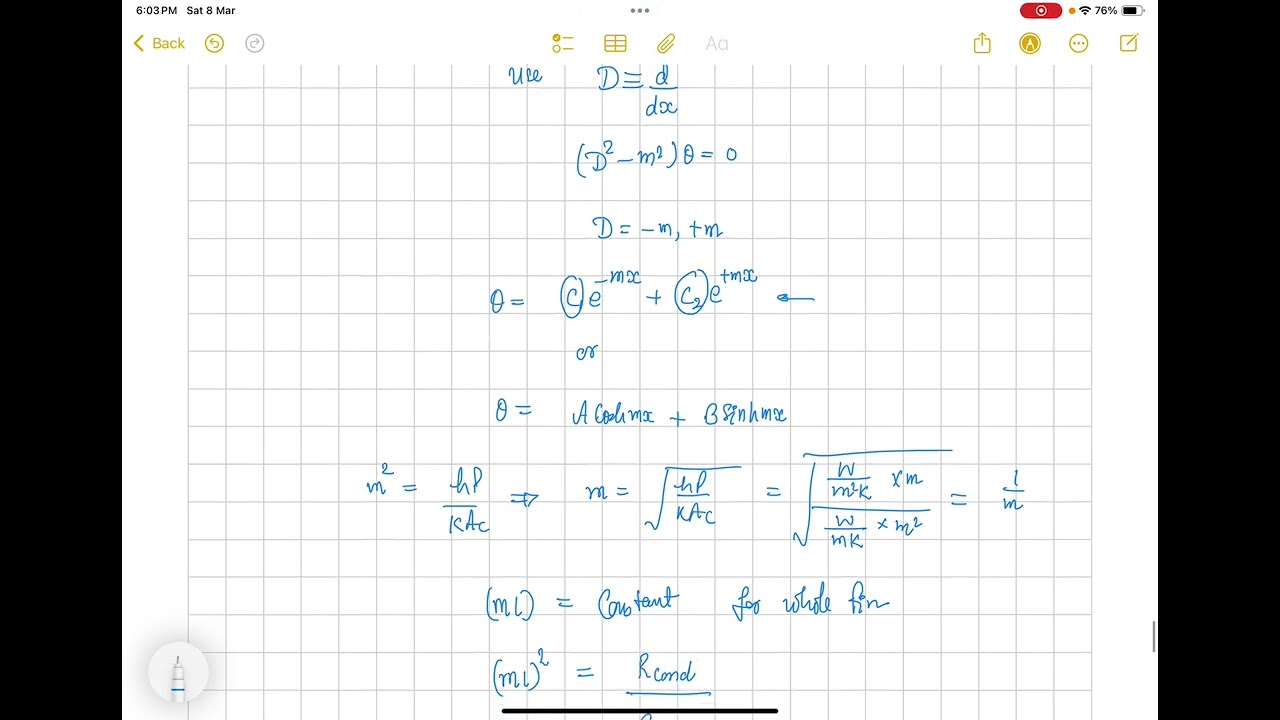 6:03 PM Sat 8 Mar 76%
Back Aa
Use D ≡ d/dx
(D² − m²) θ = 0
D = −m, +m
θ = C₁e^−mx + C₂e^+mx ←
or
θ = A Coshmx + B Sinhmx
m² = hP/KAc ⇒ m = √(hP/KAc) = √((W/m²K × m)/(W/mK × m²)) = 1/m
(ml) = Constant for whole fin
(ml)² = Rcond